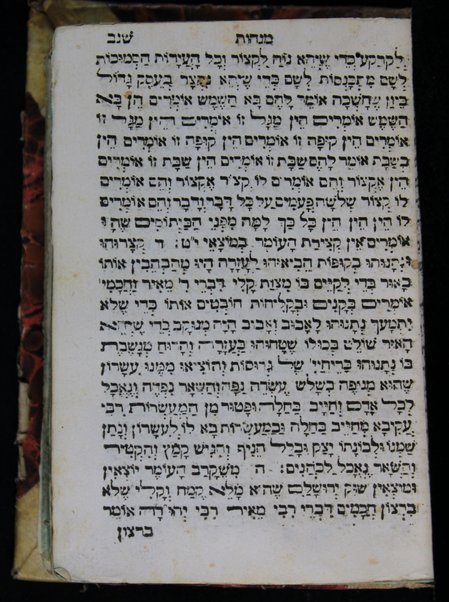 מנחות שנב
לקרקע כדי שיהא נוח לקצור וכל העיירות הסמוכות
לשם מתכנסות לשם כדי שיהא נקצר בעסק גדול
כיון שחשכה אומר להם בא השמש אומרים הין בא
השמש אומרים הין מגל זו אומרים הין מגל זו
אומרים הין קופה זו אומרים הין קופה זו אומרים הין
בשבת אומר להם שבת זו אומרים הין שבת זו אומרים
הין אקצור והם אומרים לו קצור אקצור והם אומרים
לו קצור שלשה פעמים על כל דבר ודבר והם אומרים
לו הין הין הין כל כך למה מפני הביתוסים שהיו
אומרים אין קצירת העומר במוצאי י״ט : ד קצרוהו
ונתנוהו בקופות הביאוהו לעזרה היו מהבהבין אותו
באור כדי לקיים בו מצות קלי דברי ר׳ מאיר וחכמי׳
אומרים בקנים ובקליחות חובטים אותו כדי שלא
יתמעך נתנוהו לאבוב ואביב היה מנוקב כדי שיהא
האור שולט בכולו שטחוהו בעזרה והרוח מנשבת
בו נתנוהו בריחיי׳ של גרוסות והוציאו ממנו עשרון
שהוא מנופה בשלש עשרה נפה והשאר נפדה ונאכל
לכל אדם וחייב בחלה ופטור מן המעשרות רבי
עקיבא מחייב בחלה ובמעשרות בא לו לעשרון ונתן
שמנו ולבונתו יצק ובלל הניף והגיש קמץ והקטיר
והשאר נאכל לכהנים : ה משקרב העומר יוצאין
ומוצאין שוק ירושלם שהוא מלא קמח וקלי שלא
ברצון חכמים דברי רבי מאיר רבי יהודה אומר
ברצון